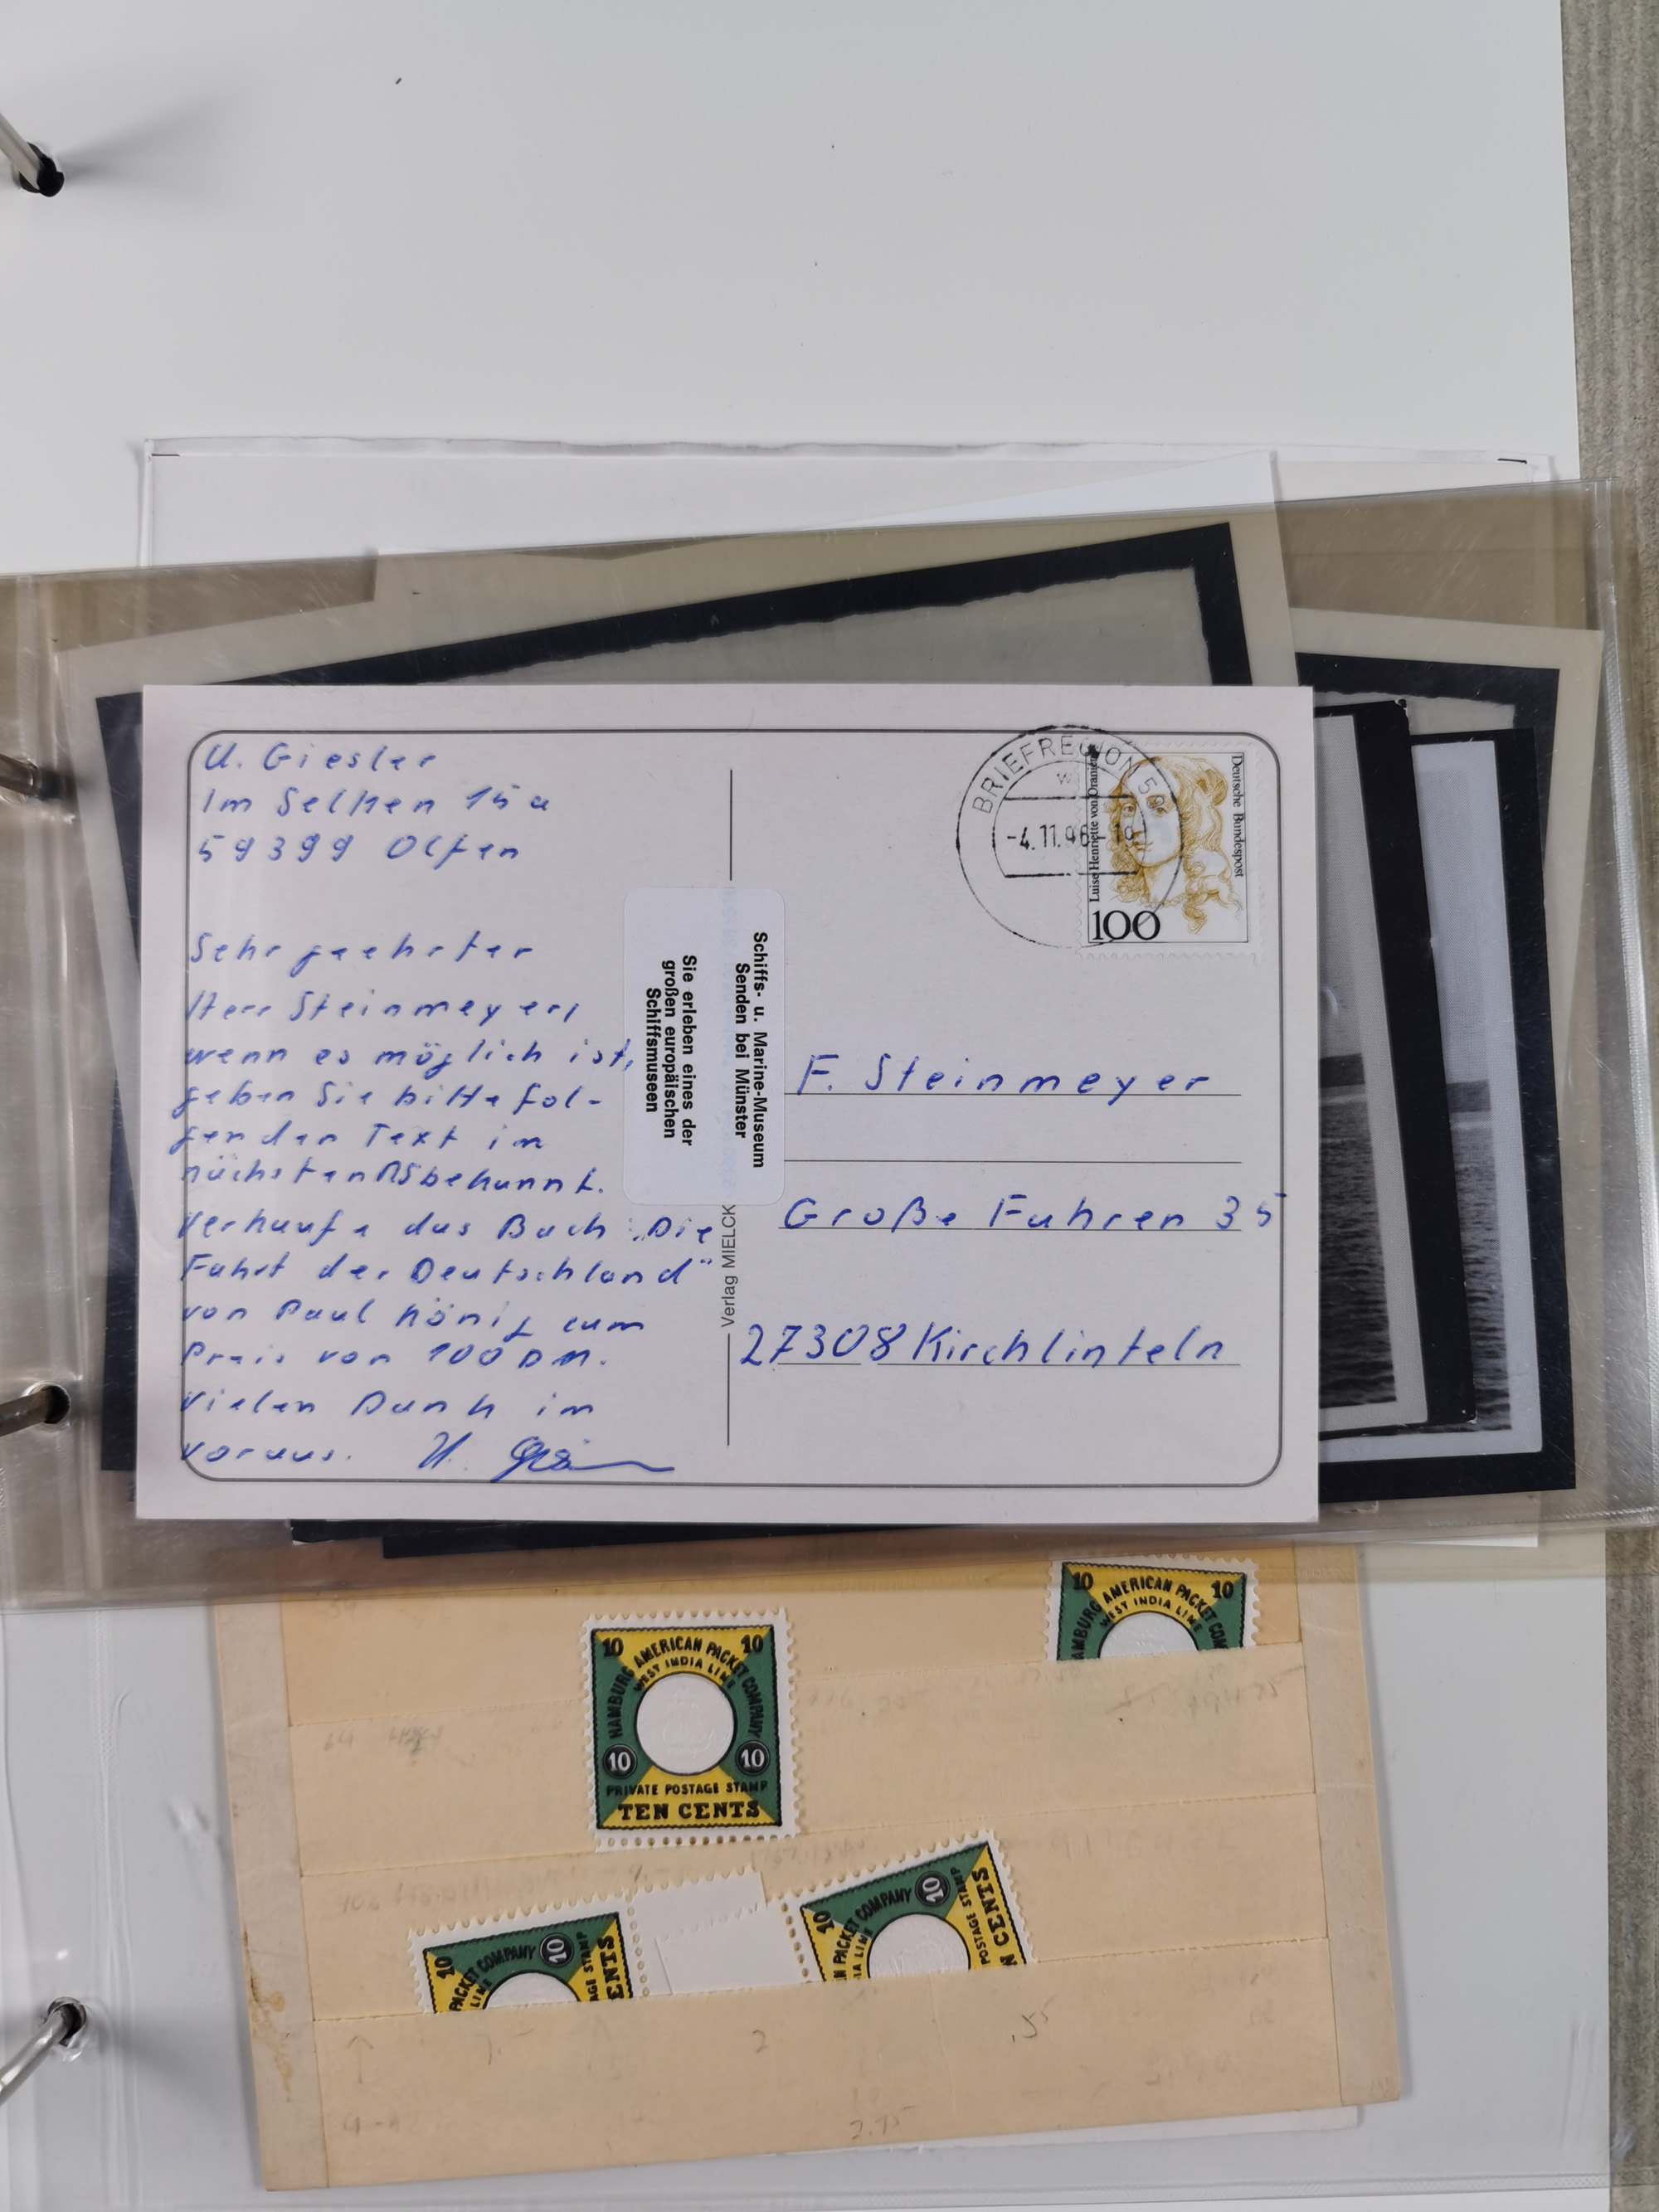 U. Giesler
Im Selken 15a
59399 Olfen
Sehr geehrter
Herr Steinmeyer,
wenn es möglich ist,
geben Sie bitte fol-
genden Text im
nächsten RSbekannt.
Verkaufe das Buch: „Die
Fahrt der Deutschland"
von Paul König zum
Preis von 100 DM.
Vielen Dank im
voraus. U.
Schiffs- u. Marine-Museum
Senden bei Münster
Sie erleben eines der
großen europäischen
Schiffsmuseen
Verlag MIELCK
BRIEFREGION 59
-4.11.96-19
Deutsche Bundespost
Luise Henriette von Oranien
100
F. Steinmeyer
Große Fuhren 35
27308 Kirchlinteln
10 10
HAMBURG AMERICAN PACKET COMPANY
WEST INDIA LINE
10 10
PRIVATE POSTAGE STAMP
TEN CENTS
10 10
AMBURG AMERICAN PACKET COM
WEST INDIA LINE
10 10
PACKET COMPANY
LINE
AGE STAMP
ENTS
10 10
N PACKET COMPANY
IA LINE
POSTAGE STAMP
N CENTS
2.75